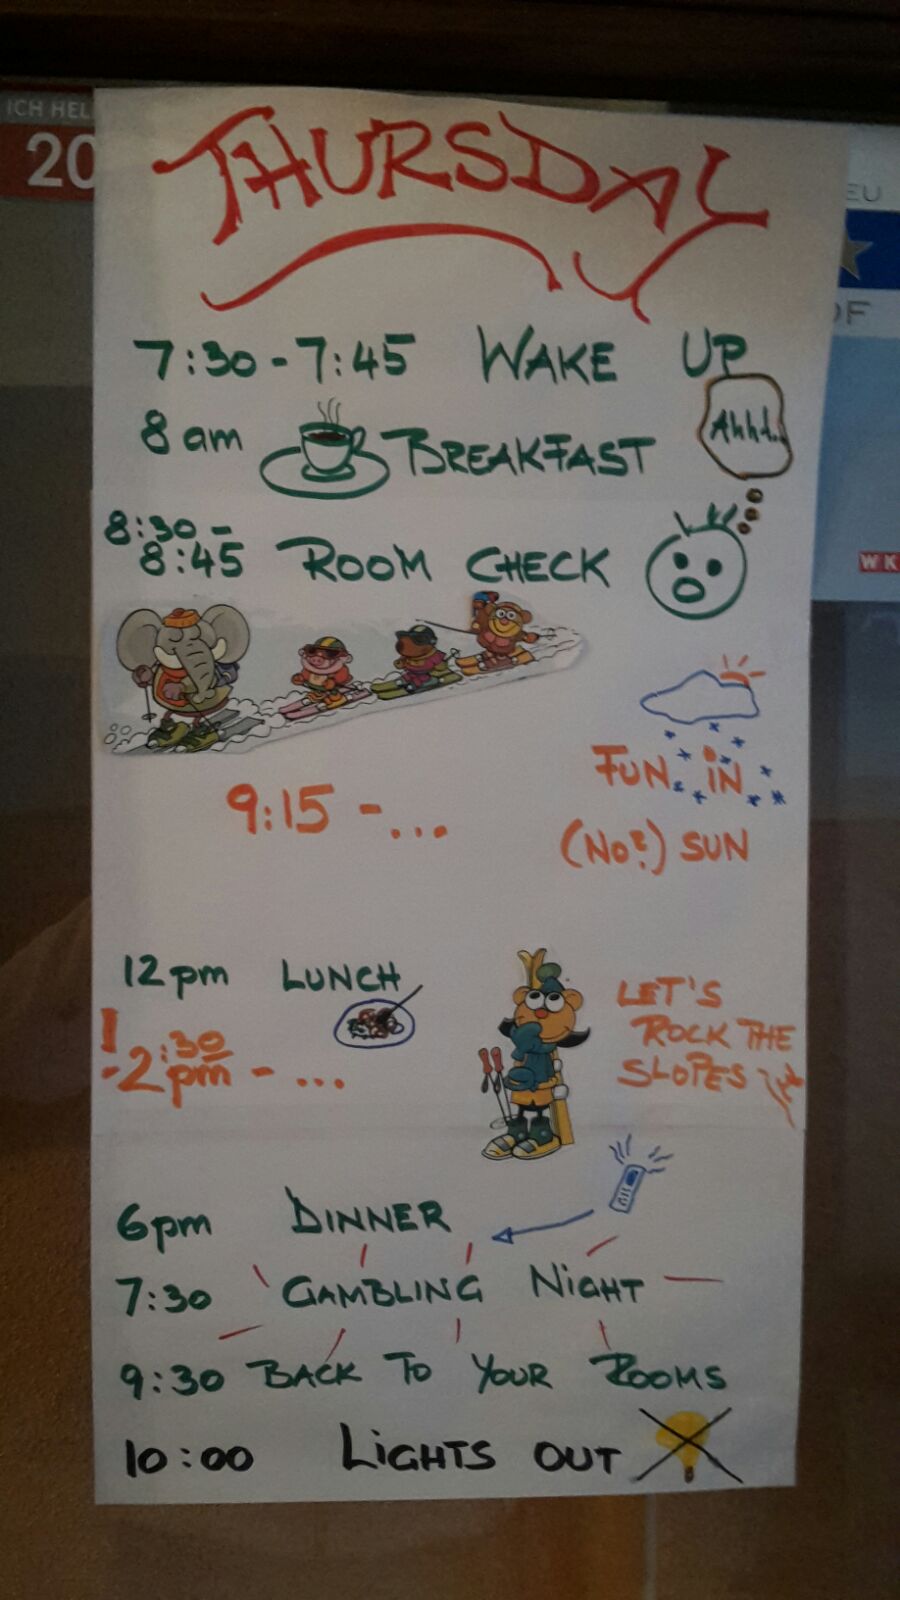 ICH HEL
20
EU
OF
WK
THURSDAY
7:30 - 7:45 WAKE UP
8 am BREAKFAST
Ahhh...
8:30 -
8:45 ROOM CHECK
FUN iN
9:15 - ...
(No?) SUN
12 pm LUNCH
LET'S
! - 2:30 pm - ...
ROCK THE
SLOPES
6 pm DINNER
7:30 GAMBLING NiGHT
9:30 BACK TO YOUR ROOMS
10:00 LiGHTS OUT